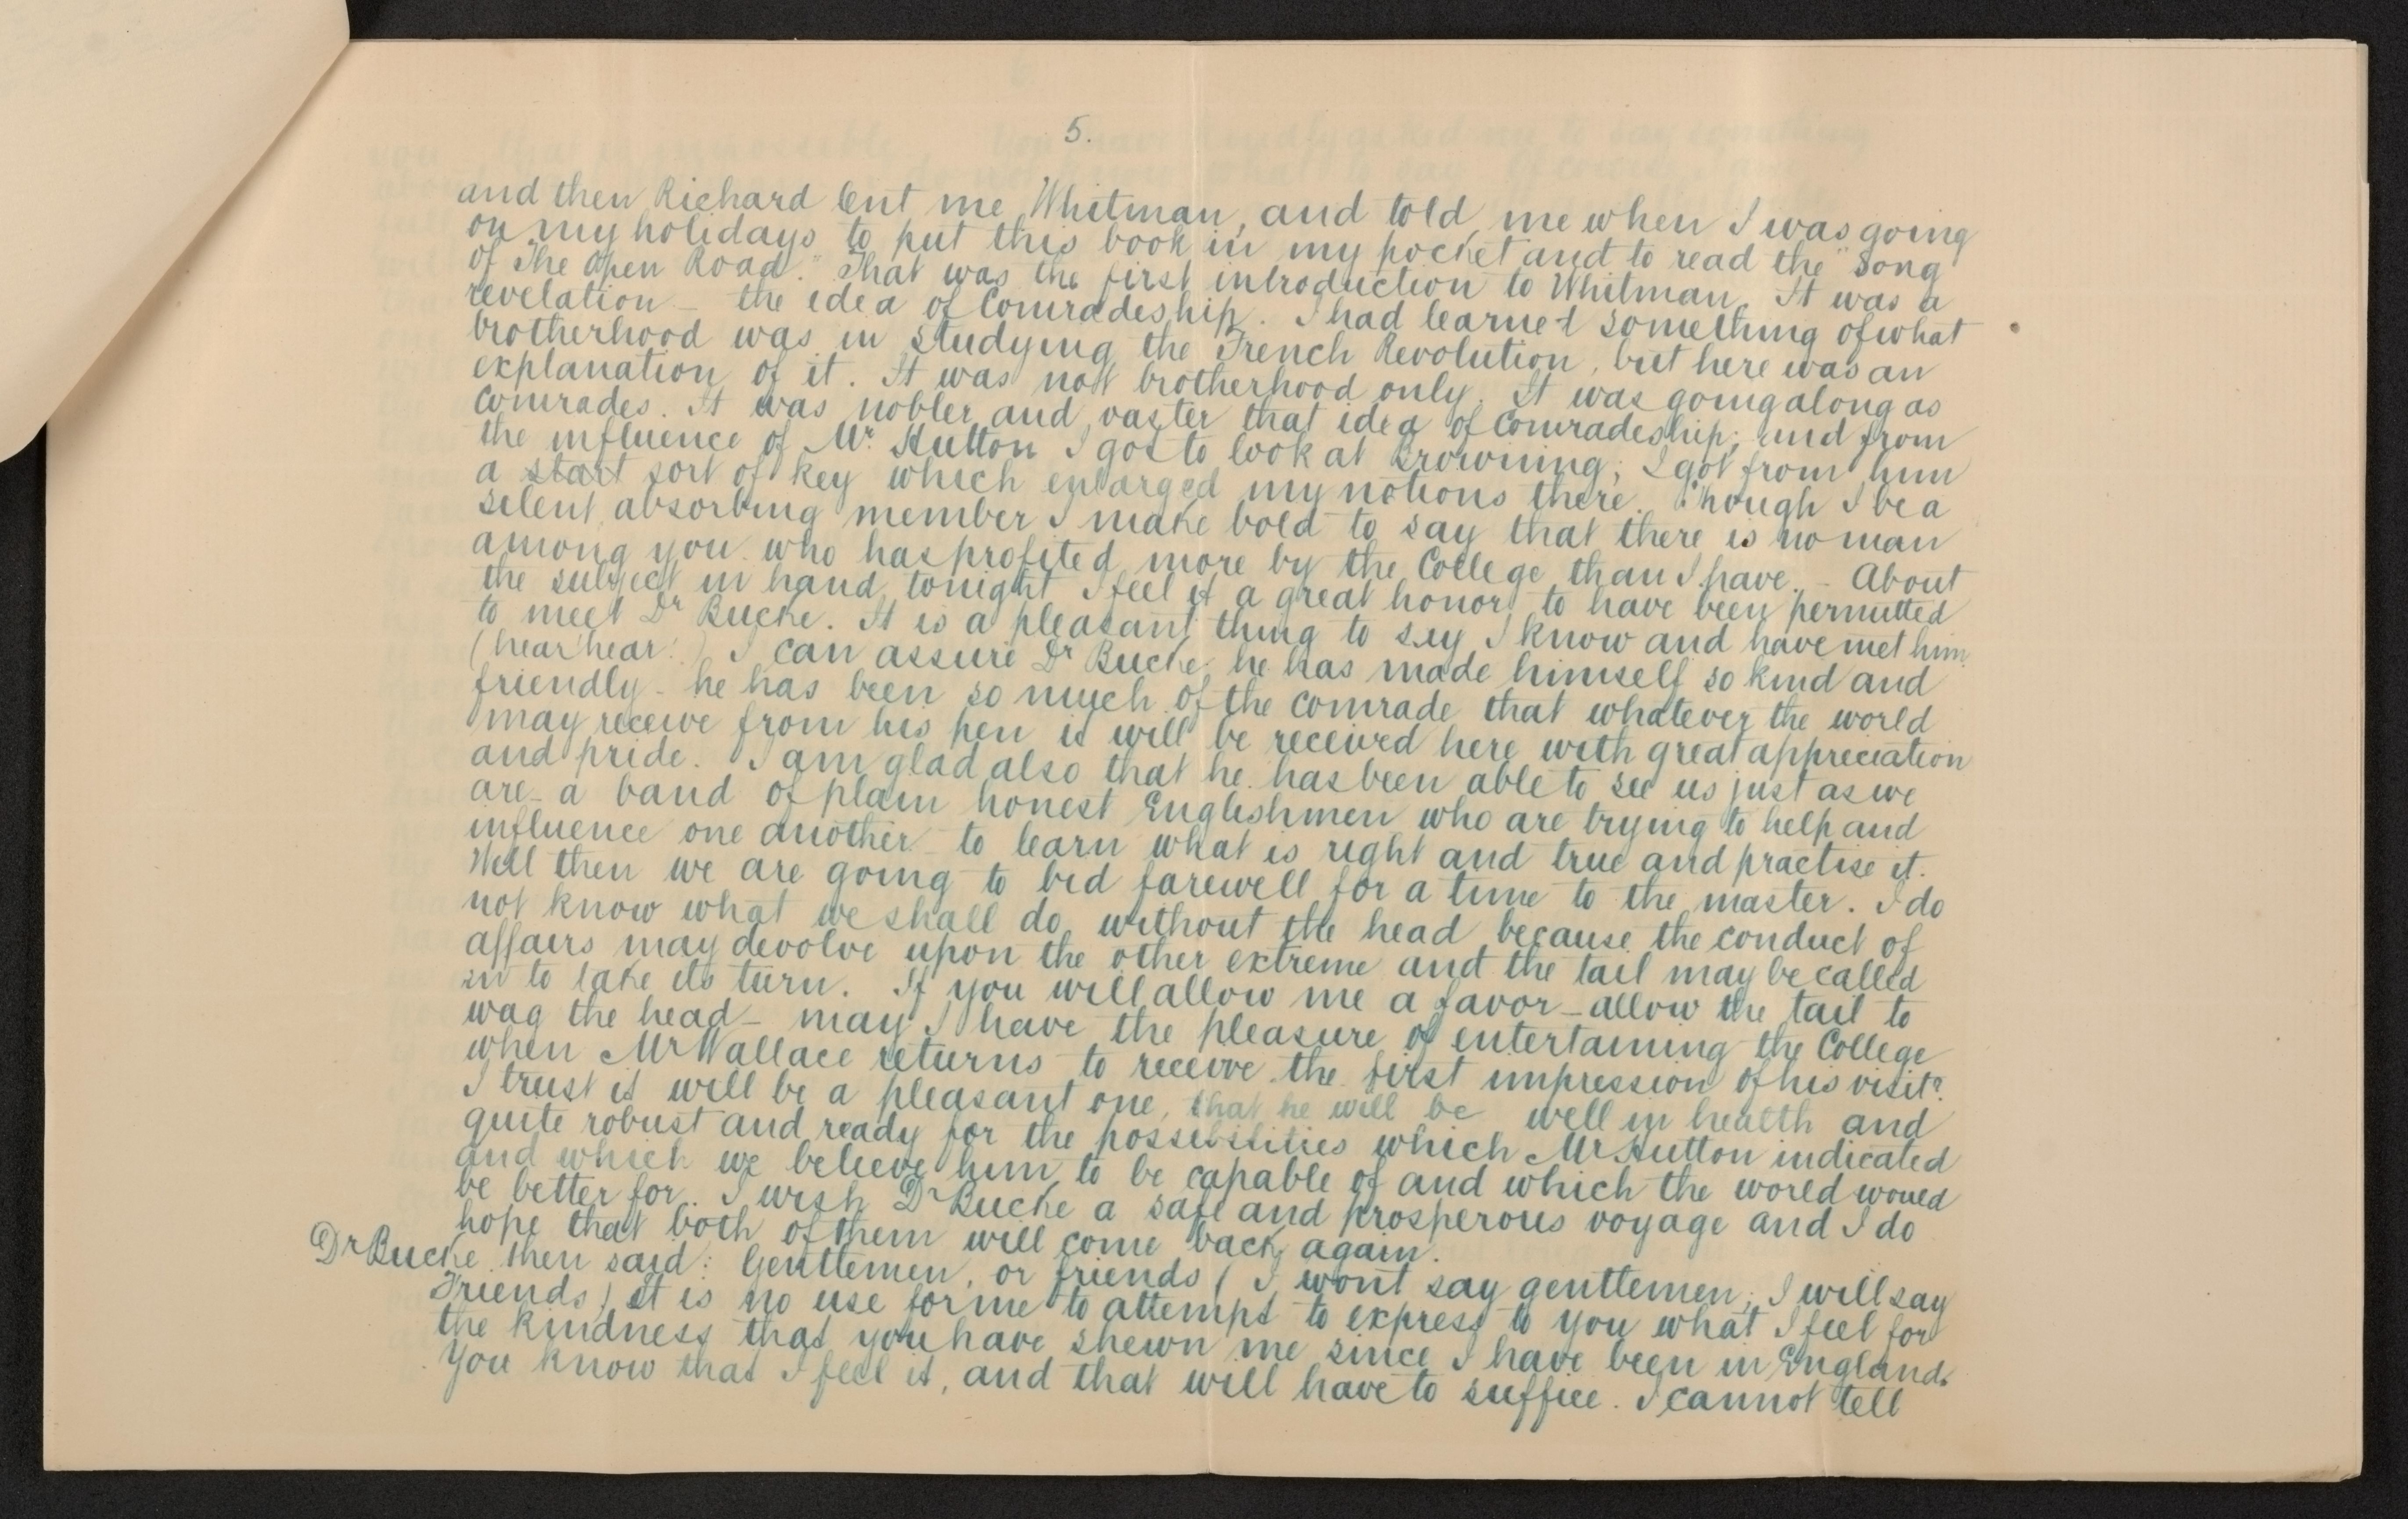 5.
and then Richard lent me Whitman, and told me when I was going
on my holidays to put this book in my pocket and to read the "Song
of The Open Road." That was the first introduction to Whitman. It was a
revelation – the idea of Comradeship. I had learned something of what
brotherhood was in studying the French Revolution, but here was an
explanation of it. It was not brotherhood only. It was going along as
comrades. It was nobler and vaster that idea of Comradeship; and from
the influence of Mr. Hutton I got to look at Browning; I got from him
a start sort of key which enlarged my notions there. Though I be a
silent, absorbing member I make bold to say that there is no man
among you who has profited more by the College than I have. – About
the subject in hand tonight I feel it a great honor to have been permitted
to meet Dr Bucke. It is a pleasant thing to say I know and have met him
(hear hear!) I can assure Dr Bucke he has made himself so kind and
friendly – he has been so much of the comrade that whatever the world
may receive from his pen it will be received here with great appreciation
and pride. I am glad also that he has been able to see us just as we
are – a band of plain honest Englishmen who are trying to help and
influence one another – to learn what is right and true and practise it.
Well then we are going to bid farewell for a time to the master. I do
not know what we shall do without the head because the conduct of
affairs may devolve upon the other extreme and the tail may be called
in to take its turn. If you will allow me a favor – allow the tail to
wag the head – may I have the pleasure of entertaining the College
when Mr Wallace returns to receive the first impression of his visit?
I trust it will be a pleasant one, that he will be well in health and
quite robust and ready for the possibilities which Mr Hutton indicated
and which we believe him to be capable of and which the world would
be better for. I wish Dr Bucke a safe and prosperous voyage and I do
hope that both of them will come back again.
Dr Bucke then said: Gentlemen, or friends (I wont say gentlemen; I will say
Friends) It is no use for me to attempt to express to you what I feel for
the kindness that you have shewn me since I have been in England.
You know that I feel it, and that will have to suffice. I cannot tell